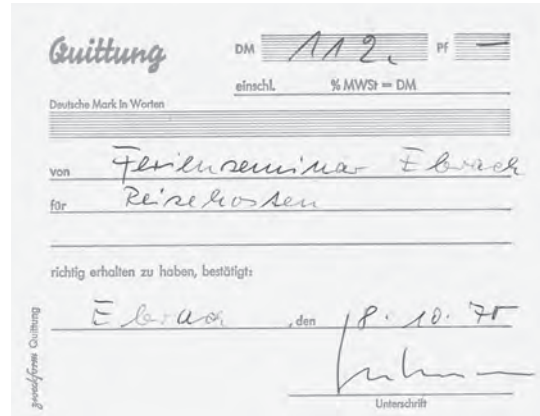 Quittung DM 112,- Pf —
einschl. % MWSt = DM
Deutsche Mark in Worten
von Ferienseminar Ebrach
für Reisekosten
richtig erhalten zu haben, bestätigt:
Ebrach, den 8.10.75
Unterschrift
zweckform Quittung